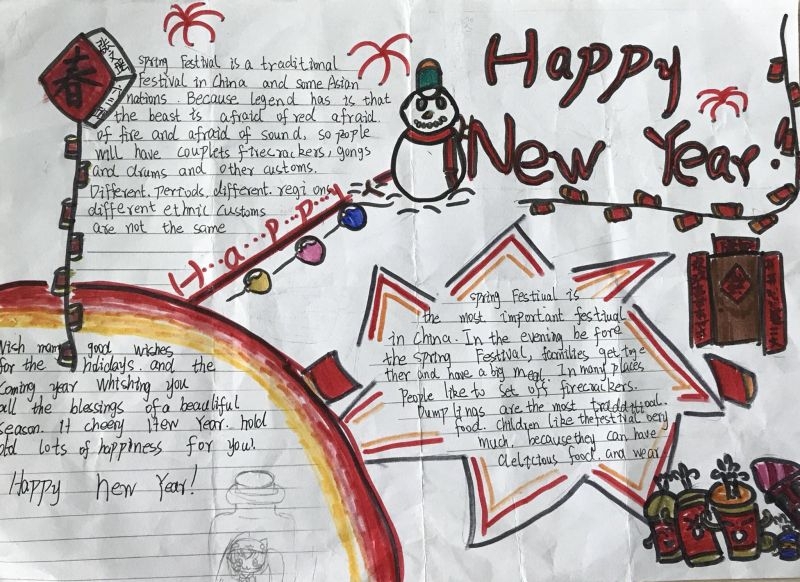 Happy
New Year!
春
spring Festival is a traditional
Festival in China and some Asian
nations. Because legend has is that
the beast is afraid of red afraid.
of fire and afraid of sound, so people
will have couplets firecrackers, gongs
and drums and other customs.
Different. periods. different. regions
different ethnic customs
are not the same
H...a...p...p...y
Wish many good wishes
for the hilidays. and the
Coming year whishing you
all the blessings of a beautiful
season. it cheery new year. hold
lots of happiness for you!.
Happy new year!
spring Festival is
the most important festival
in China. In the evening be fore
the spring Festival, families get toge
ther and have a big meal. In many places
People like to set off firecrackers.
Dumplings are the most tradditional.
food. children like the festival very
much. because they can have
delicious food. and wear